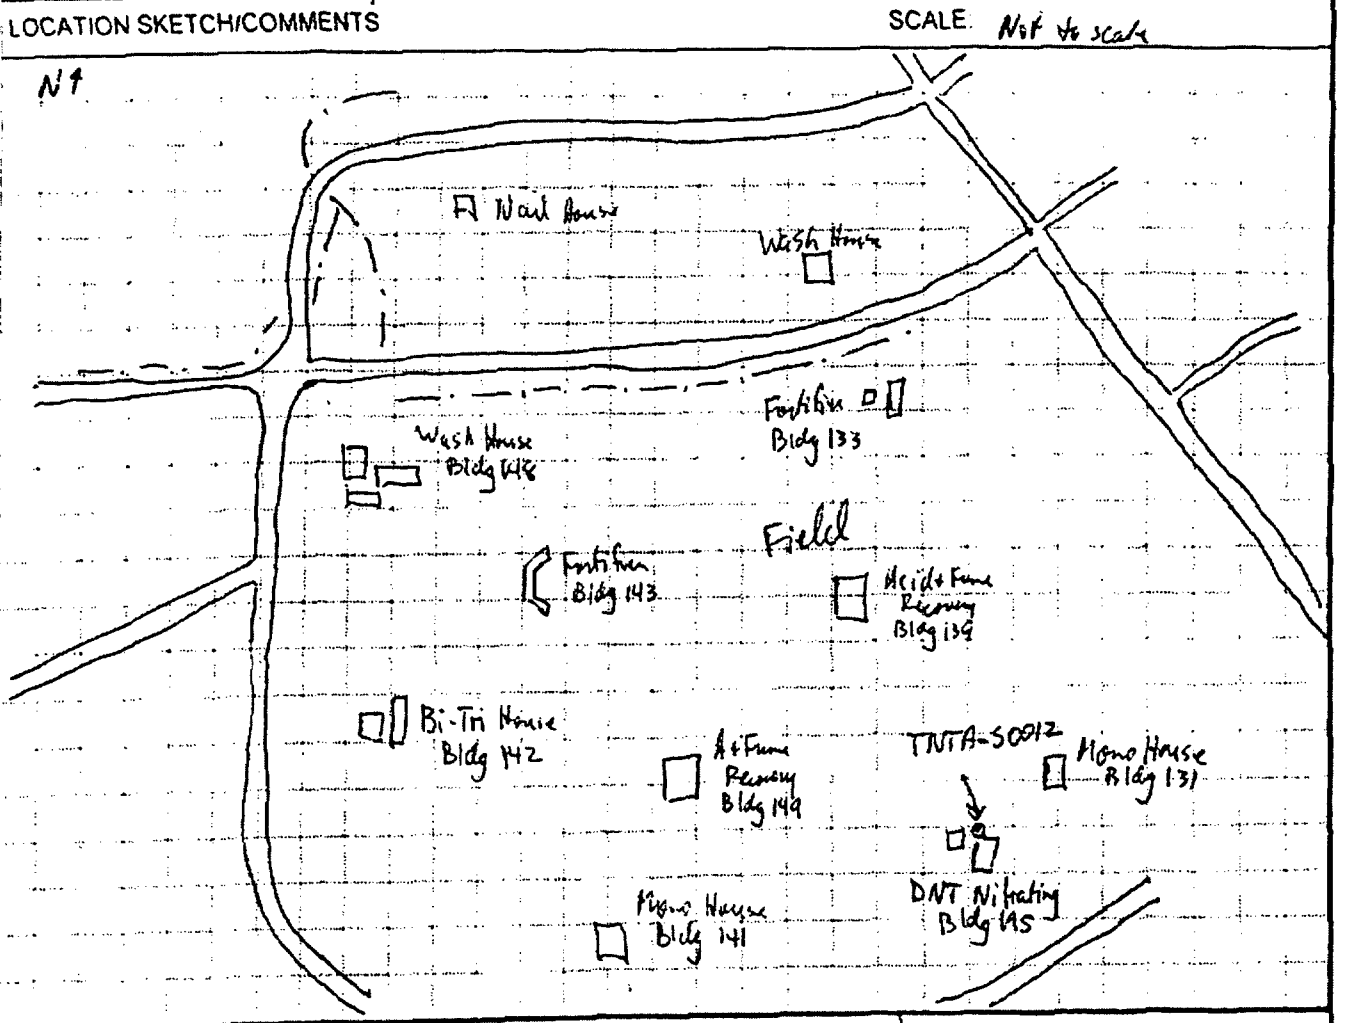 LOCATION SKETCH/COMMENTS
SCALE. Not to scale
N↑
Nail House
Wash House
Fortifier
Bldg 133
Wash House
Bldg 148
Field
Fortifier
Bldg 143
Acid + Fume
Recovery
Bldg 139
Bi-Tri House
Bldg 142
A + Fume
Recovery
Bldg 149
TNTA-S0012
Mono House
Bldg 131
DNT Nitrating
Bldg 195
Mono House
Bldg 141